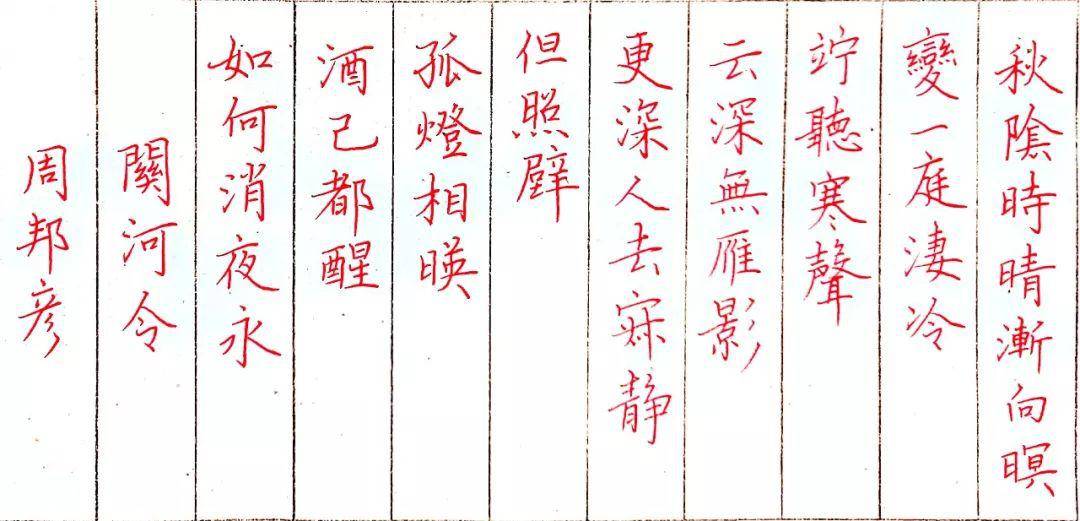 秋陰時晴漸向暝
變一庭淒冷
竚聽寒聲
云深無雁影
更深人去寂静
但照壁
孤燈相暎
酒已都醒
如何消夜永
關河令
周邦彦